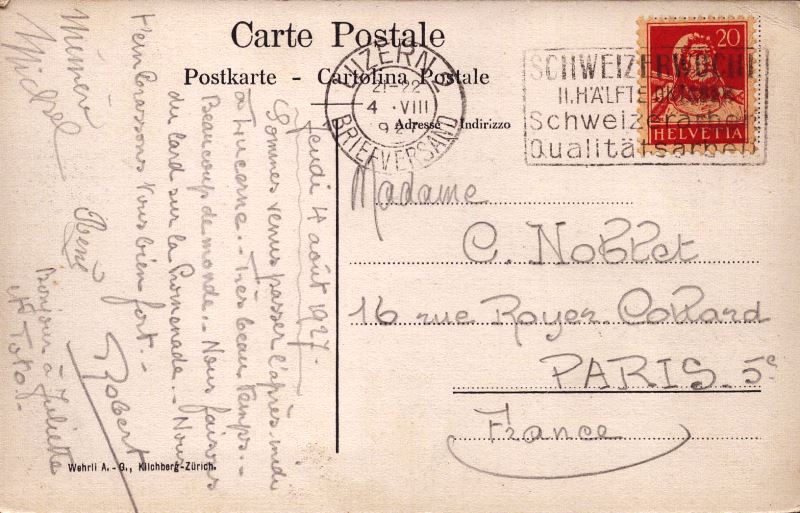 Carte Postale
Postkarte - Cartolina Postale
Adresse Indirizzo
LUZERN 2
21-22
4. VIII
BRIEFVERSAND
SCHWEIZERWOCHE
II. HÄLFTE OKTOBER
Schweizerarbeit
Qualitätsarbeit
20
HELVETIA
Madame
C. Noblet
16 rue Royer-Collard
PARIS. 5e
France
Jeudi 4 août 1927.
Sommes venus passer l'après midi
à Lucerne. - Très beau temps. -
Beaucoup de monde. - Nous faisons
du lard sur la Promenade. - Nous
t'embrassons tous bien fort. -
Robert
René
Michel
Bonjour à Juliette
et Toto. -
Wehrli A.-G., Kilchberg-Zürich.